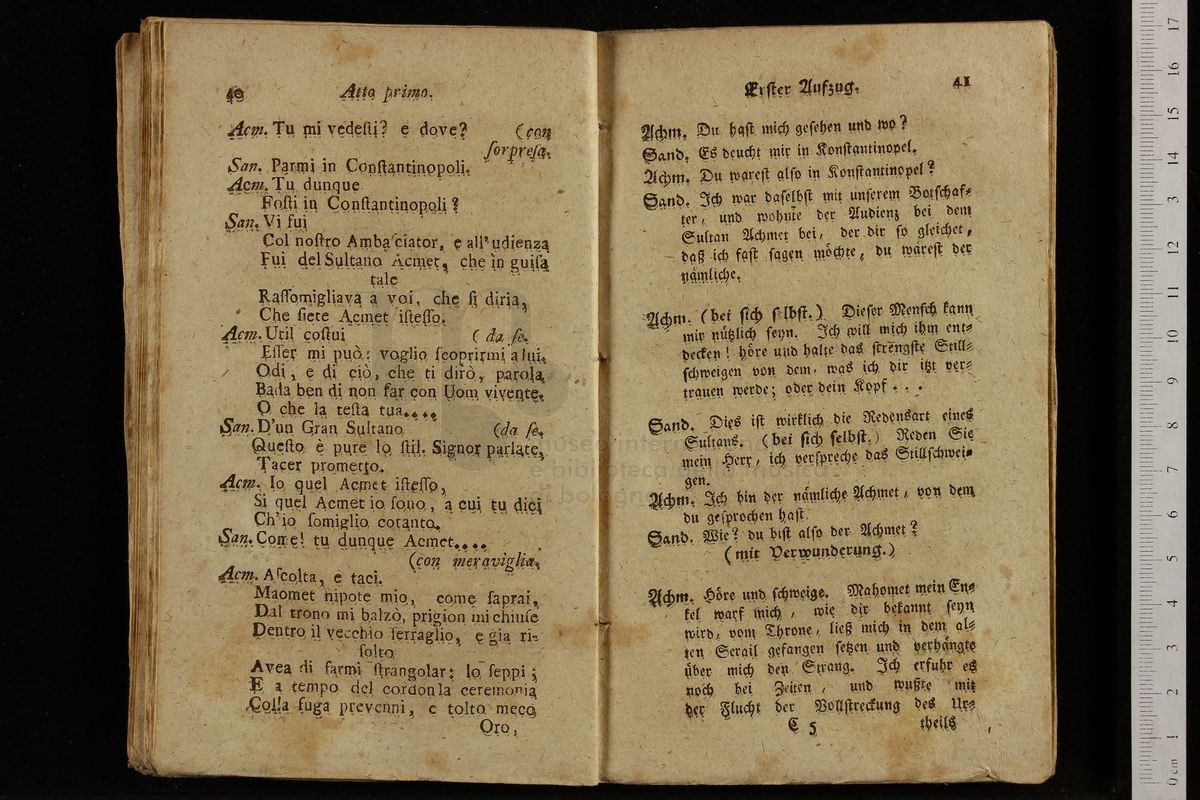 40 Atto primo.
Acm. Tu mi vedeſti? e dove? (con
ſorpreſa.
San. Parmi in Conſtantinopoli.
Acm. Tu dunque
Foſti in Conſtantinopoli?
San. Vi fui
Col noſtro Ambaſciator, e all'udienza
Fui del Sultano Acmet, che in guiſa
tale
Raſſomigliava a voi, che ſi diria,
Che ſiete Acmet iſteſſo.
Acm. Util coſtui (da ſe.
Eſſer mi può: voglio ſcoprirmi a lui.
Odi, e di ciò, che ti dirò, parola
Bada ben di non far con Uom vivente.
O che la teſta tua....
San. D'un Gran Sultano (da ſe.
Queſto è pure lo ſtil. Signor parlate,
Tacer prometto.
Acm. Io quel Acmet iſteſſo,
Si quel Acmet io ſono, a cui tu dici
Ch'io ſomiglio cotanto.
San. Come! tu dunque Acmet....
(con meraviglia.
Acm. Aſcolta, e taci.
Maomet nipote mio, come ſaprai,
Dal trono mi balzò, prigion mi chiuſe
Dentro il vecchio ſerraglio, e gia ri-
ſolto
Avea di farmi ſtrangolar: lo ſeppi;
E a tempo del cordon la ceremonia
Colla fuga prevenni, e tolto meco
Oro,
Erſter Aufzug. 41
Achm. Du haſt mich geſehen und wo?
Sand. Es deucht mir in Konſtantinopel.
Achm. Du wareſt alſo in Konſtantinopel?
Sand. Ich war daſelbſt mit unſerem Botſchaf-
ter, und wohnte der Audienz bei dem
Sultan Achmet bei, der dir ſo gleichet,
daß ich faſt ſagen möchte, du wäreſt der
nämliche.
Achm. (bei ſich ſelbſt.) Dieſer Menſch kann
mir nützlich ſeyn. Ich will mich ihm ent-
decken! höre und halte das ſtrengſte Still-
ſchweigen von dem, was ich dir itzt ver-
trauen werde; oder dein Kopf...
Sand. Dies iſt wirklich die Redensart eines
Sultans. (bei ſich ſelbſt.) Reden Sie
mein Herr, ich verſpreche das Stillſchwei-
gen.
Achm. Ich bin der nämliche Achmet, von dem
du geſprochen haſt.
Sand. Wie? du biſt alſo der Achmet?
(mit Verwunderung.)
Achm. Höre und ſchweige. Mahomet mein En-
kel warf mich, wie dir bekannt ſeyn
wird, vom Throne, ließ mich in dem al-
ten Serail gefangen ſetzen und verhängte
über mich den Strang. Ich erfuhr es
noch bei Zeiten, und wußte mit
der Flucht der Vollſtreckung des Ur-
C 5 theils
museo internazionale
e biblioteca della musica
di bologna
0 cm 1 2 3 4 5 6 7 8 9 10 11 12 13 14 15 16 17